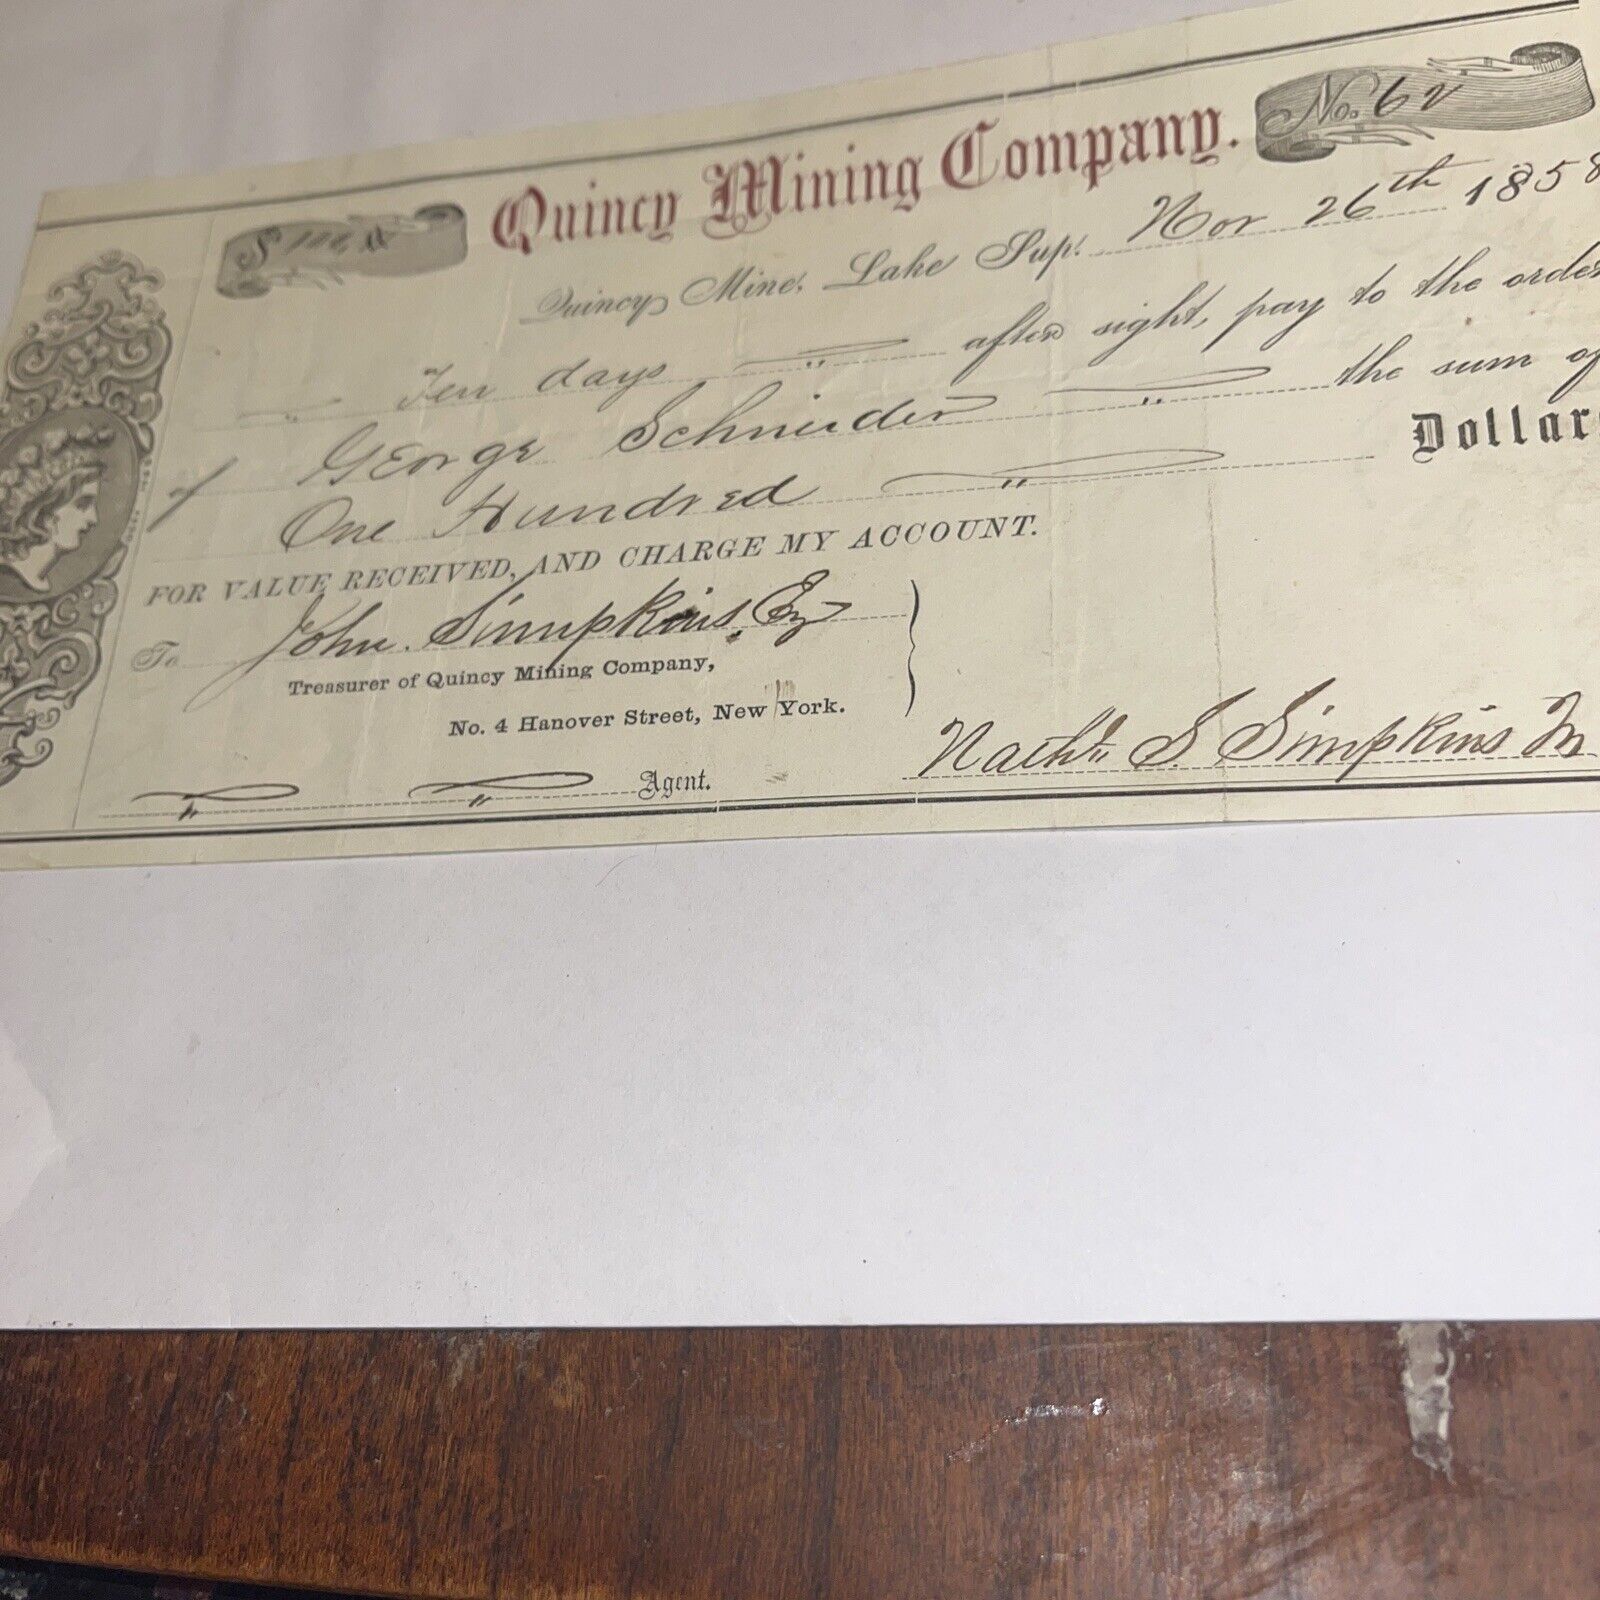 Quincy Mining Company.
No. 62
Quincy Mine, Lake Sup. Nov 26th 1858
Ten days " after sight, pay to the order
of George Schnieder " the sum of
One Hundred " Dollars
FOR VALUE RECEIVED, AND CHARGE MY ACCOUNT.
To John. Simpkins, Esq
Treasurer of Quincy Mining Company,
No. 4 Hanover Street, New York.
Nathn S. Simpkins Jr
" " Agent.